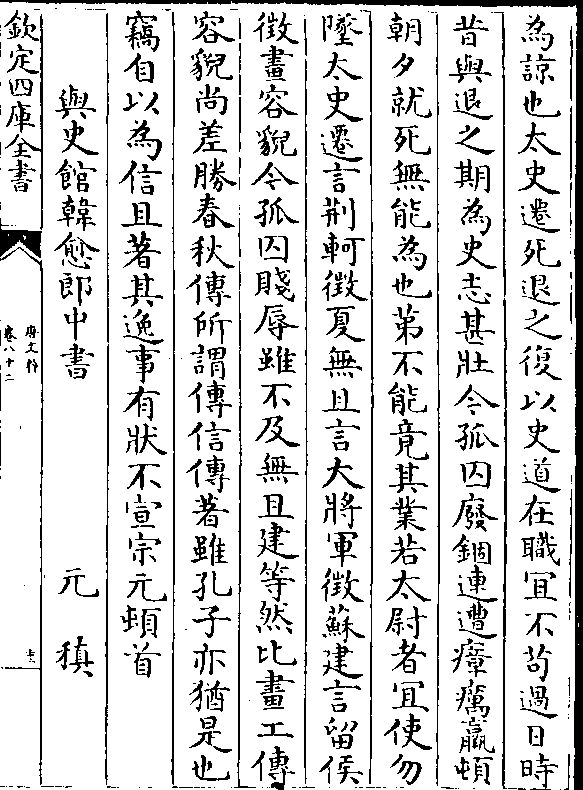 為諒也太史遷死退之復以史道在職宜不苟過日時
昔與退之期為史志甚壯今孤囚廢錮連遭瘴癘羸頓
朝夕就死無能為也第不能竟其業若太尉者宜使勿
墜太史遷言荆軻徴夏無且言大將軍徴蘇建言留侯
徴畫容貌今孤囚賤辱雖不及無且建等然比畫工傳
容貌尚差勝春秋傳所謂傳信傳著雖孔子亦猶是也
竊自以為信且著其逸事有狀不宣宗元頓首
與史館韓愈郎中書 元稹
欽定四庫全書
唐文粹
卷八十二